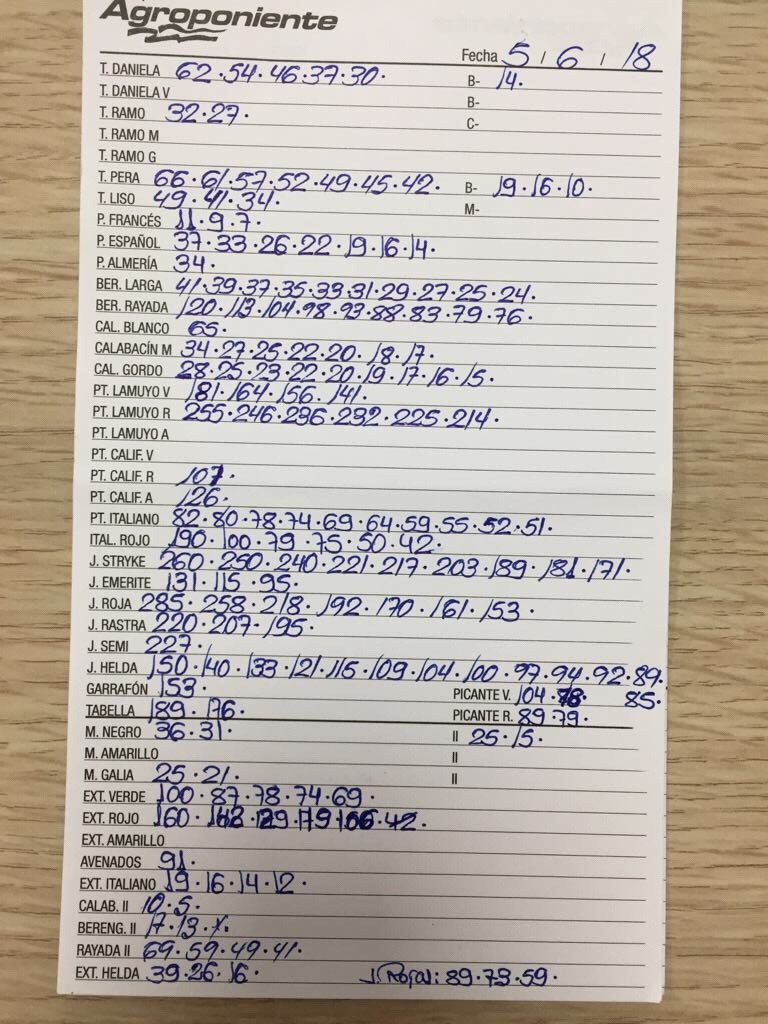 Agroponiente
Fecha 5 / 6 / 18
T. DANIELA 62·54·46·37·30· B- 14·
T. DANIELA V B-
T. RAMO 32·27· C-
T. RAMO M
T. RAMO G
T. PERA 66·61·57·52·49·45·42· B- 19·16·10·
T. LISO 49·41·34· M-
P. FRANCÉS 11·9·7·
P. ESPAÑOL 37·33·26·22·19·16·14·
P. ALMERÍA 34·
BER. LARGA 41·39·37·35·33·31·29·27·25·24·
BER. RAYADA 120·113·104·98·93·88·83·79·76·
CAL. BLANCO 65·
CALABACÍN M 34·27·25·22·20·18·17·
CAL. GORDO 28·25·23·22·20·19·17·16·15·
PT. LAMUYO V 181·164·156·141·
PT. LAMUYO R 255·246·236·232·225·214·
PT. LAMUYO A
PT. CALIF. V
PT. CALIF. R 107·
PT. CALIF. A 126·
PT. ITALIANO 82·80·78·74·69·64·59·55·52·51·
ITAL. ROJO 190·100·79·75·50·42·
J. STRYKE 260·250·240·221·217·203·189·181·171·
J. EMERITE 131·115·95·
J. ROJA 285·258·218·192·170·161·153·
J. RASTRA 220·207·195·
J. SEMI 227·
J. HELDA 150·140·133·121·115·109·104·100·97·94·92·89·
GARRAFÓN 153· PICANTE V. 104· 85·
TABELLA 189·176· PICANTE R. 89·79·
M. NEGRO 36·31· II 25·15·
M. AMARILLO II
M. GALIA 25·21· II
EXT. VERDE 100·87·78·74·69·
EXT. ROJO 160· 42·
EXT. AMARILLO
AVENADOS 91·
EXT. ITALIANO 19·16·14·12·
CALAB. II 10·5·
BERENG. II 17·13·
RAYADA II 69·59·49·41·
EXT. HELDA 39·26·16· J. Roja: 89·73·59·